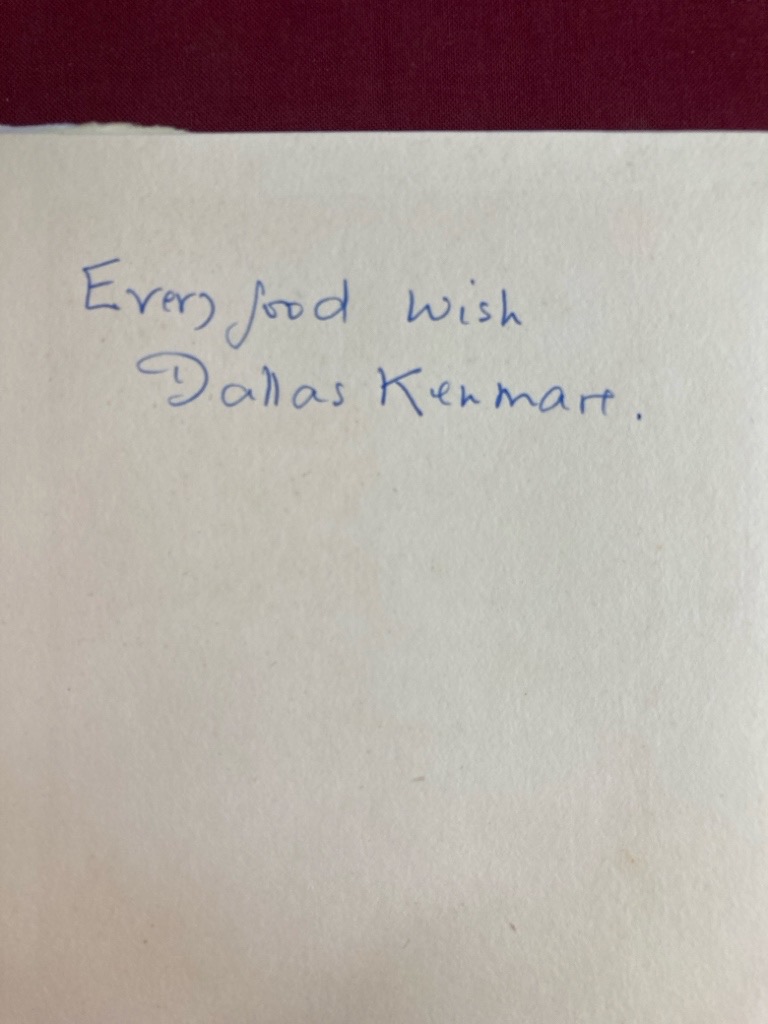 Every good wish
Dallas Kenmare.